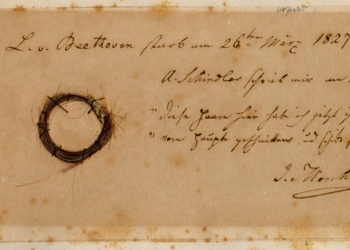 L. v. Beethoven starb am 26ten März 1827
A. Schindler schrieb mir am
"Diese Haare hier habe ich jetzt
"vom Haupte geschnitten und